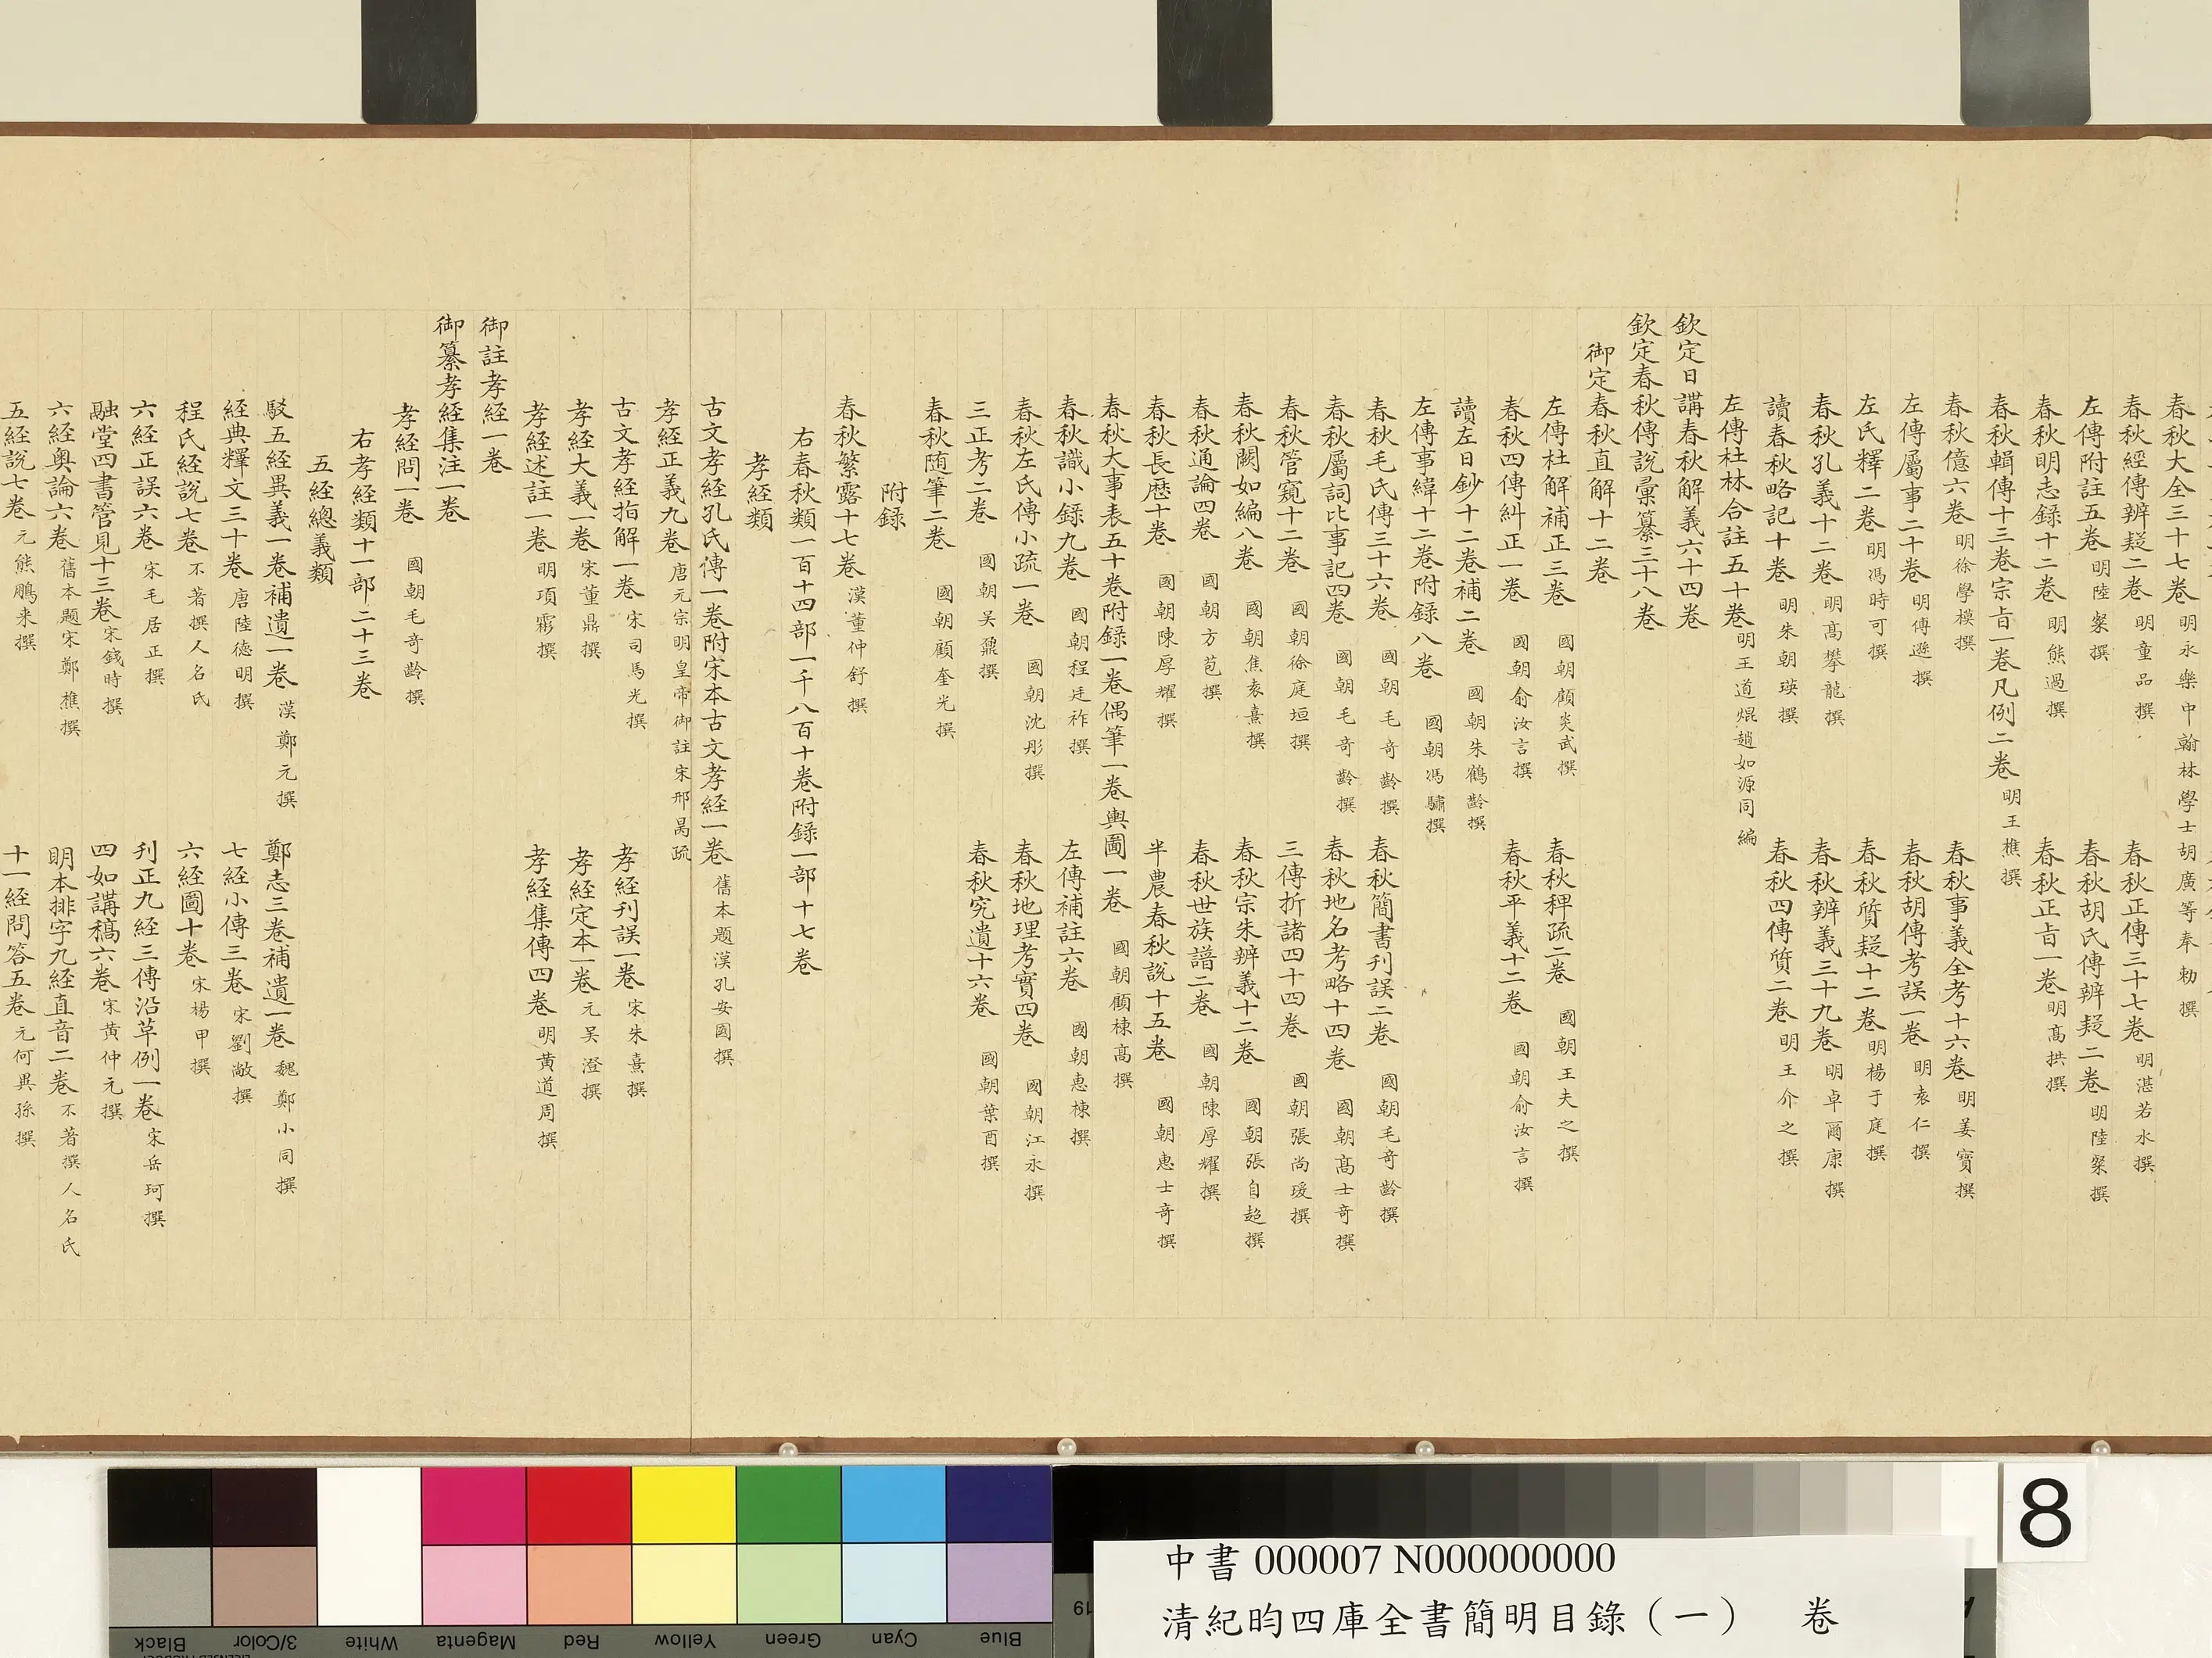 春秋大全三十七卷 明永樂中翰林學士胡廣等奉勅撰
春秋經傳辨疑二卷 明童品撰 春秋正傳三十七卷 明湛若水撰
左傳附註五卷 明陸粲撰 春秋胡氏傳辨疑二卷 明陸粲撰
春秋明志録十二卷 明熊過撰 春秋正旨一卷 明髙拱撰
春秋輯傳十三卷宗旨一卷凡例二卷 明王樵撰
春秋億六卷 明徐學模撰 春秋事義全考十六卷 明姜寳撰
左傳屬事二十卷 明傅遜撰 春秋胡傳考誤一卷 明袁仁撰
左氏釋二卷 明馮時可撰 春秋質疑十二卷 明楊于庭撰
春秋孔義十二卷 明髙攀龍撰 春秋辨義三十九卷 明卓爾康撰
讀春秋略記十卷 明朱朝瑛撰 春秋四傳質二卷 明王介之撰
左傳杜林合註五十卷 明王道焜趙如源同編
欽定日講春秋解義六十四卷
欽定春秋傳說彙纂三十八卷
御定春秋直解十二卷
左傳杜解補正三卷 國朝顧炎武撰 春秋稗疏二卷 國朝王夫之撰
春秋四傳糾正一卷 國朝俞汝言撰 春秋平義十二卷 國朝俞汝言撰
讀左日鈔十二卷補二卷 國朝朱鶴齡撰
左傳事緯十二卷附録八卷 國朝馮驌撰
春秋毛氏傳三十六卷 國朝毛奇齡撰 春秋簡書刋誤二卷 國朝毛奇齡撰
春秋屬詞比事記四卷 國朝毛奇齡撰 春秋地名考略十四卷 國朝髙士奇撰
春秋管窺十二卷 國朝徐庭垣撰 三傳折諸四十四卷 國朝張尚瑗撰
春秋闕如編八卷 國朝焦袁熹撰 春秋宗朱辨義十二卷 國朝張自超撰
春秋通論四卷 國朝方苞撰 春秋世族譜二卷 國朝陳厚耀撰
春秋長歷十卷 國朝陳厚耀撰 半農春秋說十五卷 國朝惠士奇撰
春秋大事表五十卷附録一卷偶筆一卷輿圖一卷 國朝顧棟髙撰
春秋識小録九卷 國朝程廷祚撰 左傳補註六卷 國朝惠棟撰
春秋左氏傳小疏一卷 國朝沈彤撰 春秋地理考實四卷 國朝江永撰
三正考二卷 國朝吳鼐撰 春秋究遺十六卷 國朝葉酉撰
春秋随筆二卷 國朝顧奎光撰
附録
春秋繁露十七卷 漢董仲舒撰
右春秋類一百十四部一千八百十卷附録一部十七卷
孝經類
古文孝經孔氏傳一卷附宋本古文孝經一卷 舊本題漢孔安國撰
孝經正義九卷 唐元宗明皇帝御註宋邢昺疏
古文孝經指解一卷 宋司馬光撰 孝經刋誤一卷 宋朱熹撰
孝經大義一卷 宋董鼎撰 孝經定本一卷 元吳澄撰
孝經述註一卷 明項霦撰 孝經集傳四卷 明黄道周撰
御註孝經一卷
御纂孝經集注一卷
孝經問一卷 國朝毛奇齡撰
右孝經類十一部二十三卷
五經總義類
駁五經異義一卷補遺一卷 漢鄭元撰 鄭志三卷補遺一卷 魏鄭小同撰
經典釋文三十卷 唐陸德明撰 七經小傳三卷 宋劉敞撰
程氏經說七卷 不著撰人名氏 六經圖十卷 宋楊甲撰
六經正誤六卷 宋毛居正撰 刋正九經三傳沿革例一卷 宋岳珂撰
融堂四書管見十三卷 宋錢時撰 四如講稿六卷 宋黄仲元撰
六經奥論六卷 舊本題宋鄭樵撰 明本排字九經直音二卷 不著撰人名氏
五經說七卷 元熊鵬来撰 十一經問答五卷 元何異孫撰
8
中書 000007 N000000000
清紀昀四庫全書簡明目錄（一） 卷
Black
3/Color
White
Magenta
Red
Yellow
Green
Cyan
Blue
19